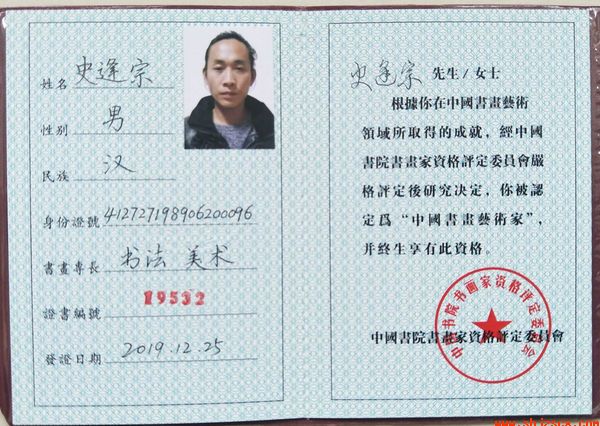 姓名 史逢宗
性别 男
民族 汉
身份證號 412727198906200096
書畫專長 书法 美术
證書編號 19532
發證日期 2019.12.25
史逢宗 先生/女士
根據你在中國書畫藝術
領域所取得的成就，經中國
書院書畫家資格評定委員會嚴
格評定後研究决定，你被認
定爲“中國書畫藝術家”，
并終生享有此資格。
中國書院書畫家資格評定委員會
中国书院书画家资格评定委员会